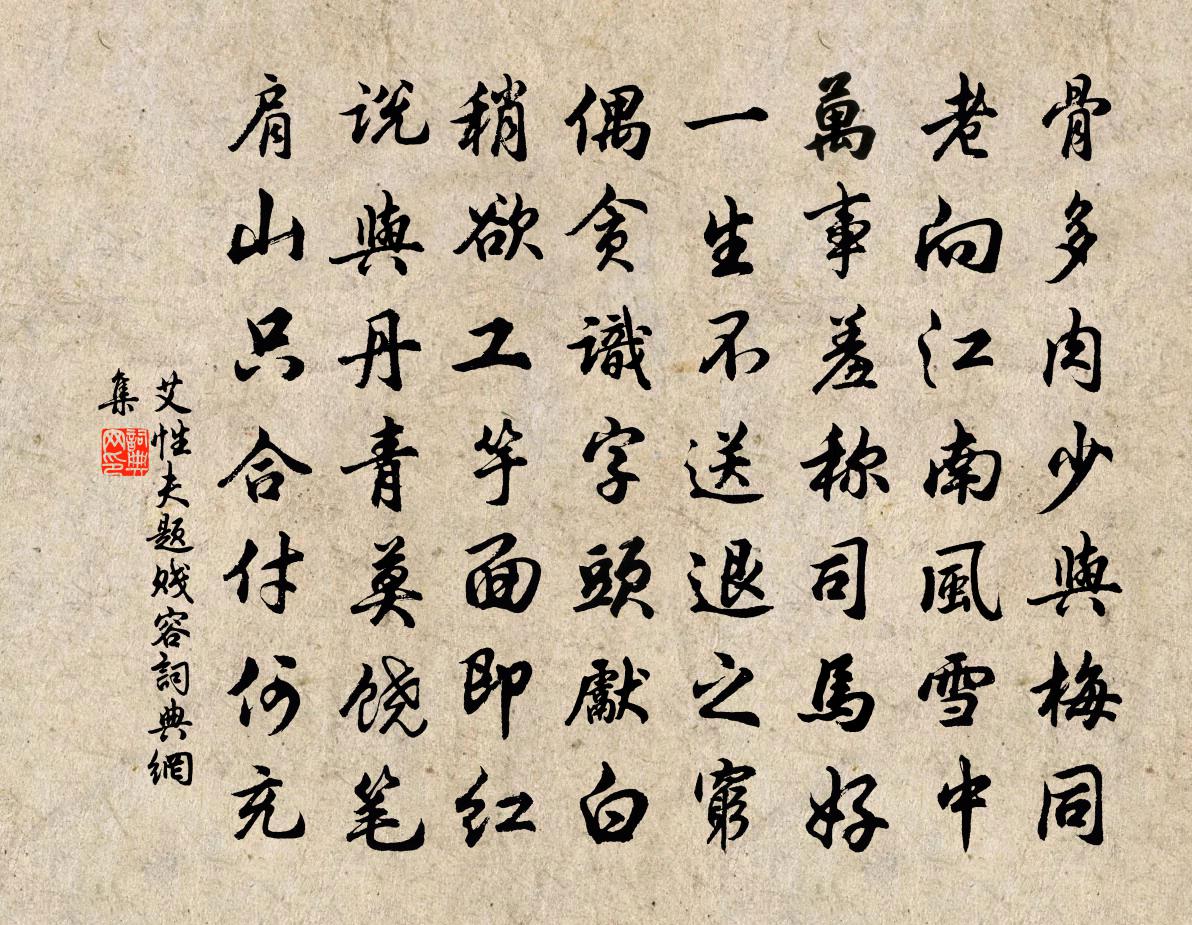 骨多肉少與梅同
老向江南風雪中
萬事羞称司馬好
一生不送退之窮
偶贪識字頭獻白
稍欲工竽面即红
说與丹青莫饶笔
肩山只合付何充
艾性夫题贱容詞典網
集
詞典
网印